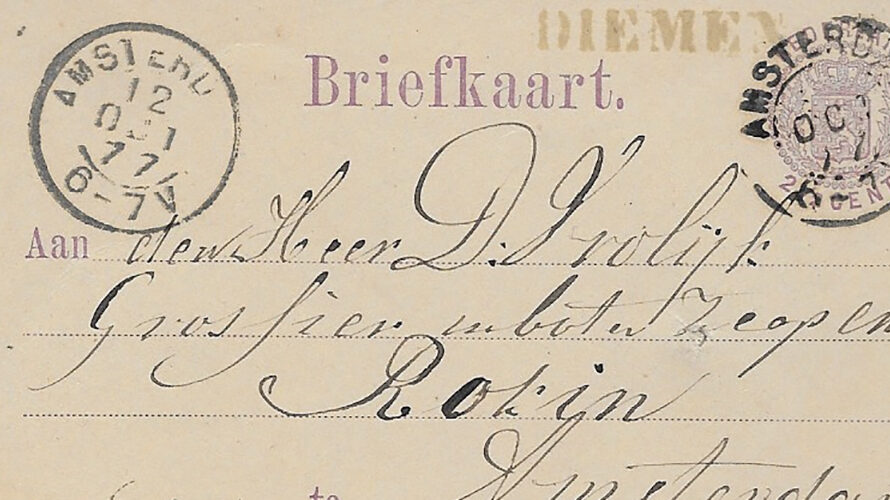 DIEMEN
AMSTERD
12
OCT
77
6-7V
Briefkaart.
AMSTERDA
OCT
77
6-7
2 CENT
Aan den Heer D. Vrolijk
Grossier in boter Zeepen
Rokin
te Amsterda